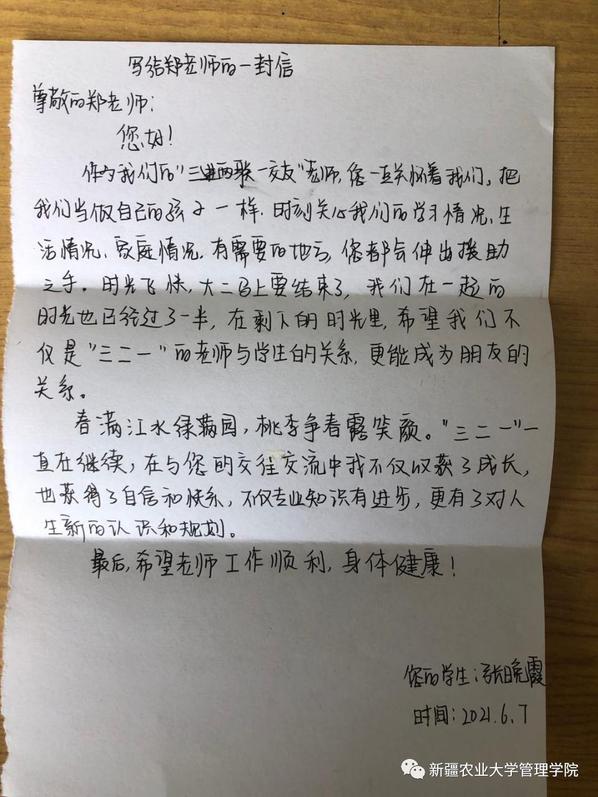 写给郑老师的一封信
尊敬的郑老师：
您好！
作为我们的"三进两联一交友"老师，您一直关怀着我们，把
我们当做自己的孩子一样，时刻关心我们的学习情况、生
活情况、家庭情况，有需要的地方，您都会伸出援助
之手。时光飞快，大二马上要结束了，我们在一起的
时光也已经过了一半，在剩下的时光里，希望我们不
仅是"三二一"的老师与学生的关系，更能成为朋友的
关系。
春满江水绿满园，桃李争春露笑颜。"三二一"一
直在继续，在与您的交往交流中我不仅收获了成长，
也获得了自信和快乐，不仅专业知识有进步，更有了对人
生新的认识和规划。
最后，希望老师工作顺利，身体健康！
您的学生：张晓霞
时间：2021.6.7
新疆农业大学管理学院